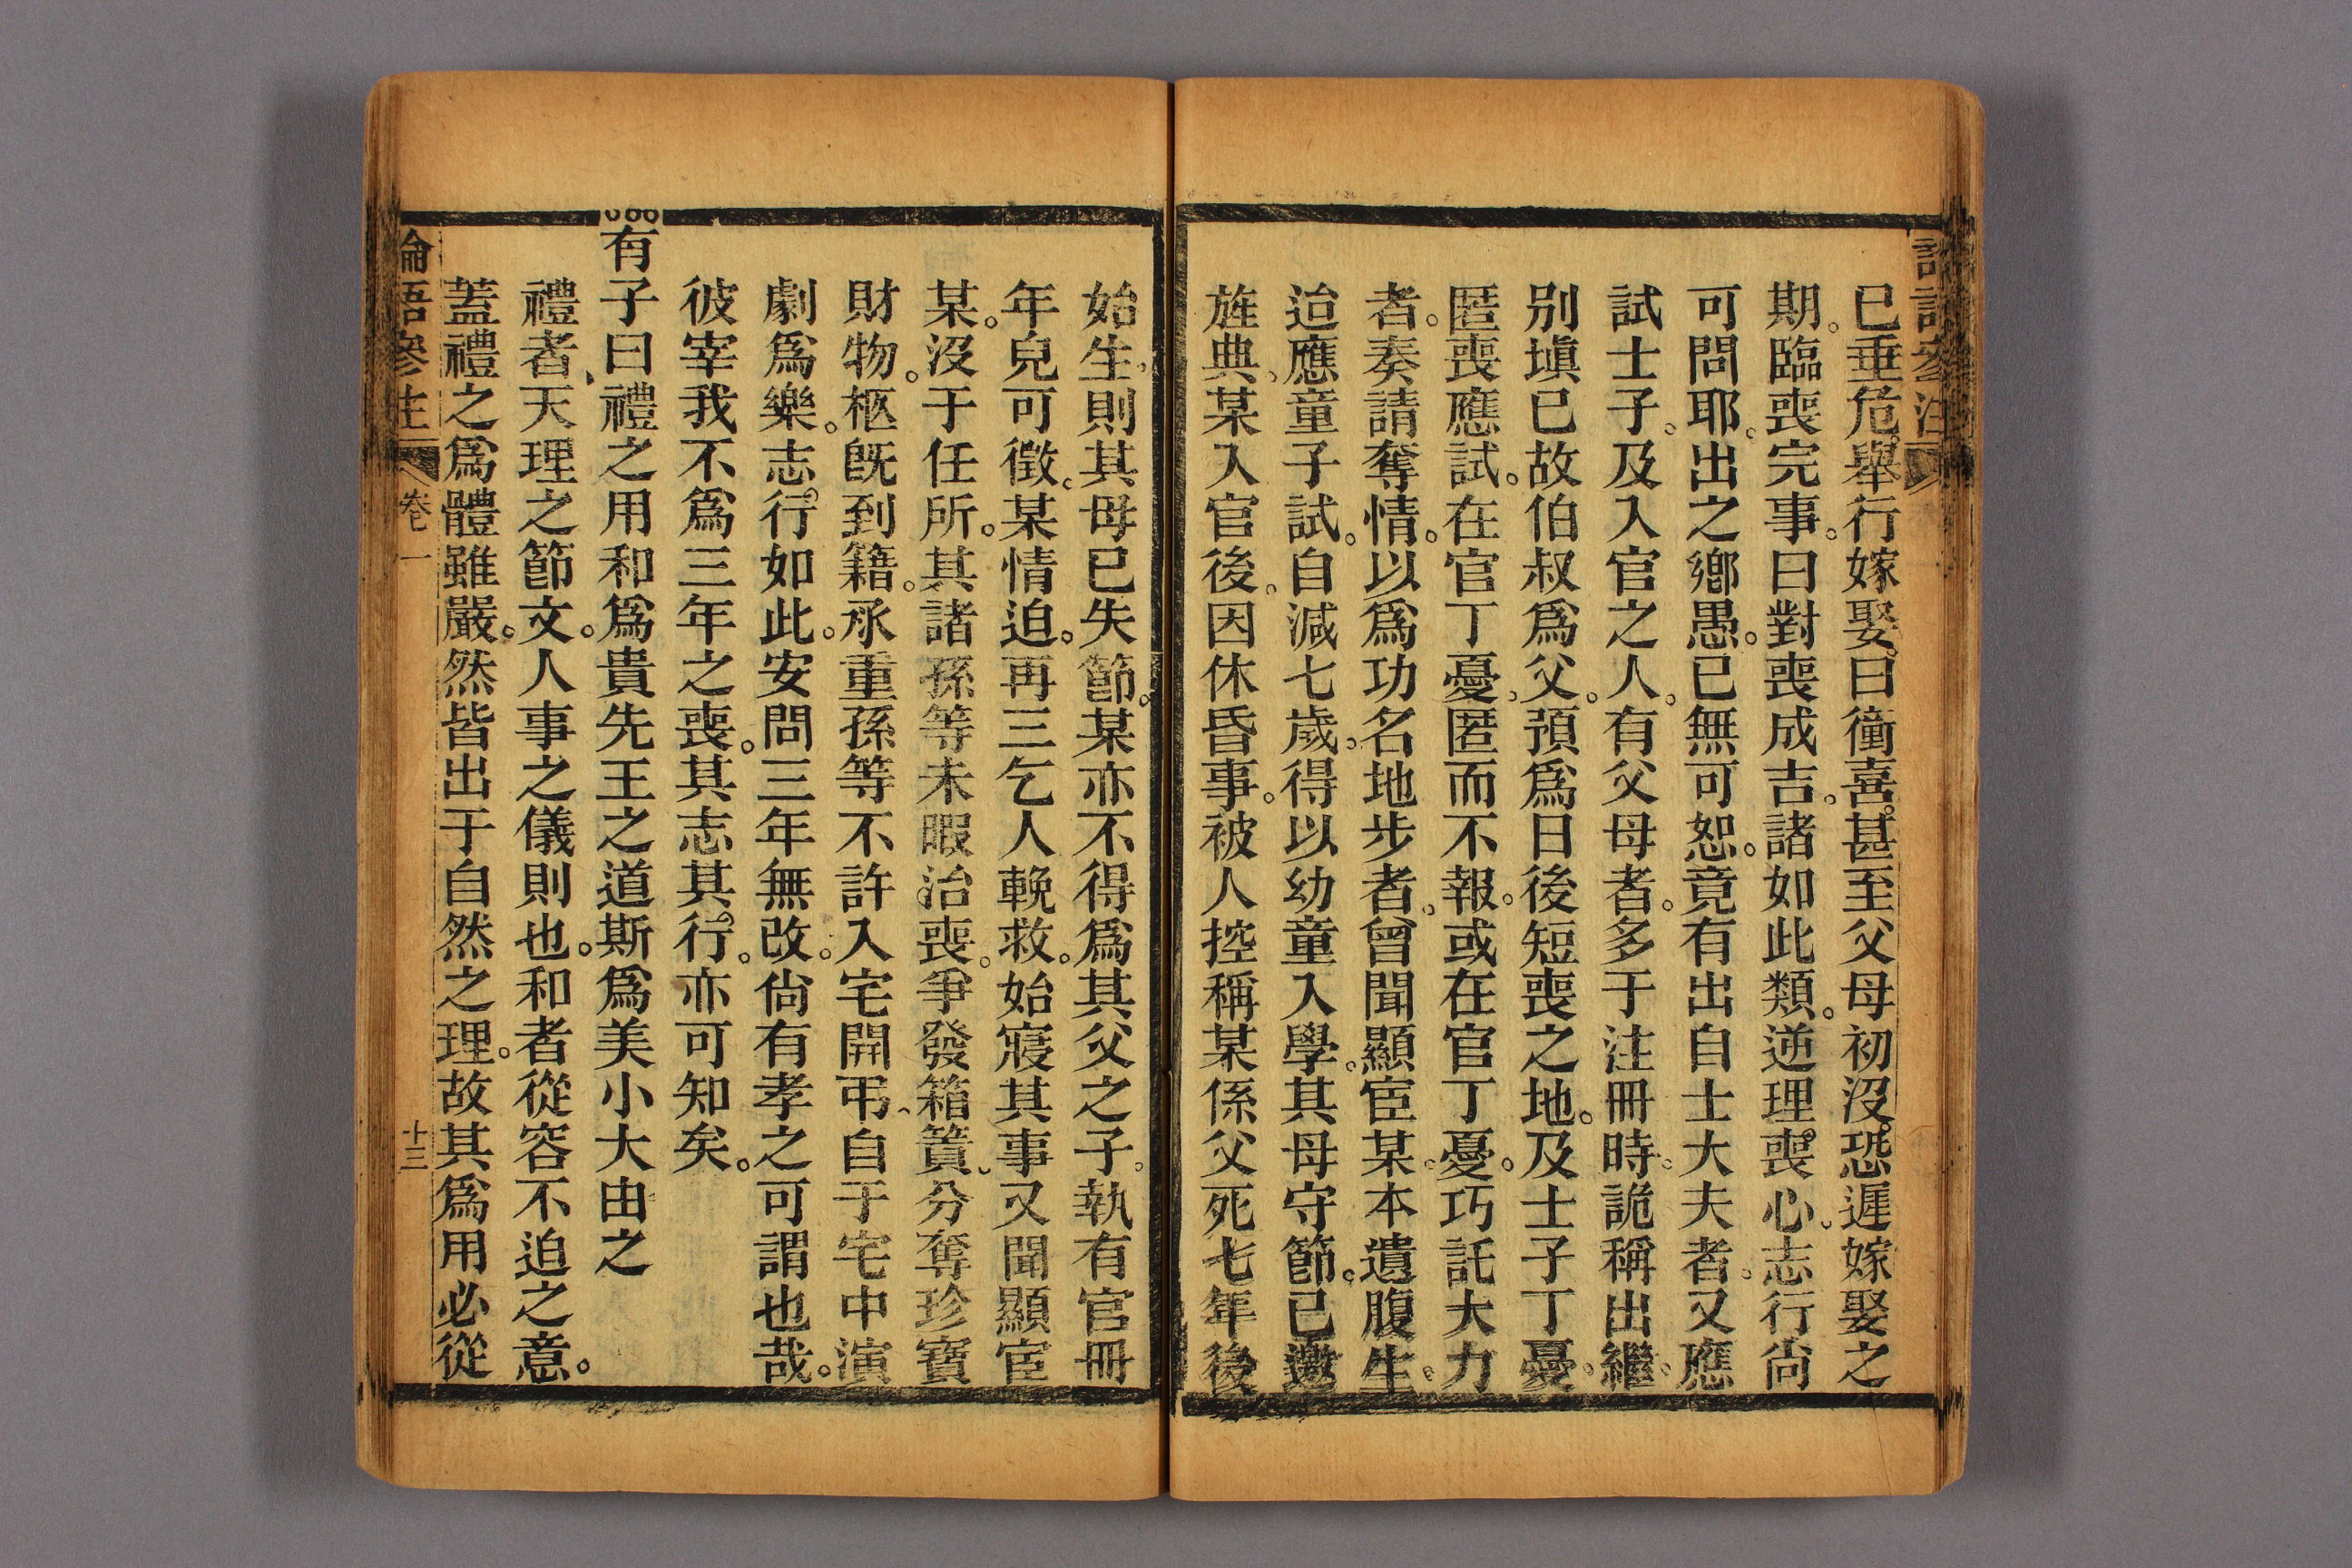 已垂危。舉行嫁娶。曰衝喜。甚至父母初沒。恐遲嫁娶之
期。臨喪完事。曰對喪成吉。諸如此類。逆理喪心。志行尙
可問耶。出之鄉愚。已無可恕。竟有出自士大夫者。又應
試士子。及入官之人。有父母者。多于注冊時。詭稱出繼。
别塡已故伯叔爲父。預爲日後短喪之地。及士子丁憂。
匿喪應試。在官丁憂。匿而不報。或在官丁憂。巧託大力
者。奏請奪情。以爲功名地步者。曾聞顯宦某。本遺腹生。
迨應童子試。自減七歲。得以幼童入學。其母守節。已邀
旌典。某入官後。因休昏事。被人控稱某係父死七年後
始生。則其母已失節。某亦不得爲其父之子。執有官冊
年皃可徵。某情迫。再三乞人輓救。始寢其事。又聞顯宦
某。沒于任所。其諸孫等未暇治喪。爭發箱簣。分奪珍寶
財物。柩旣到籍。承重孫等不許入宅開弔。自于宅中演
劇爲樂。志行如此。安問三年無改。尙有孝之可謂也哉。
彼宰我不爲三年之喪。其志其行。亦可知矣。
有子曰禮之用和爲貴先王之道斯爲美小大由之
禮者、天理之節文。人事之儀則也。和者從容不迫之意。
蓋禮之爲體雖嚴。然皆出于自然之理。故其爲用必從
論語參注 卷一 十三